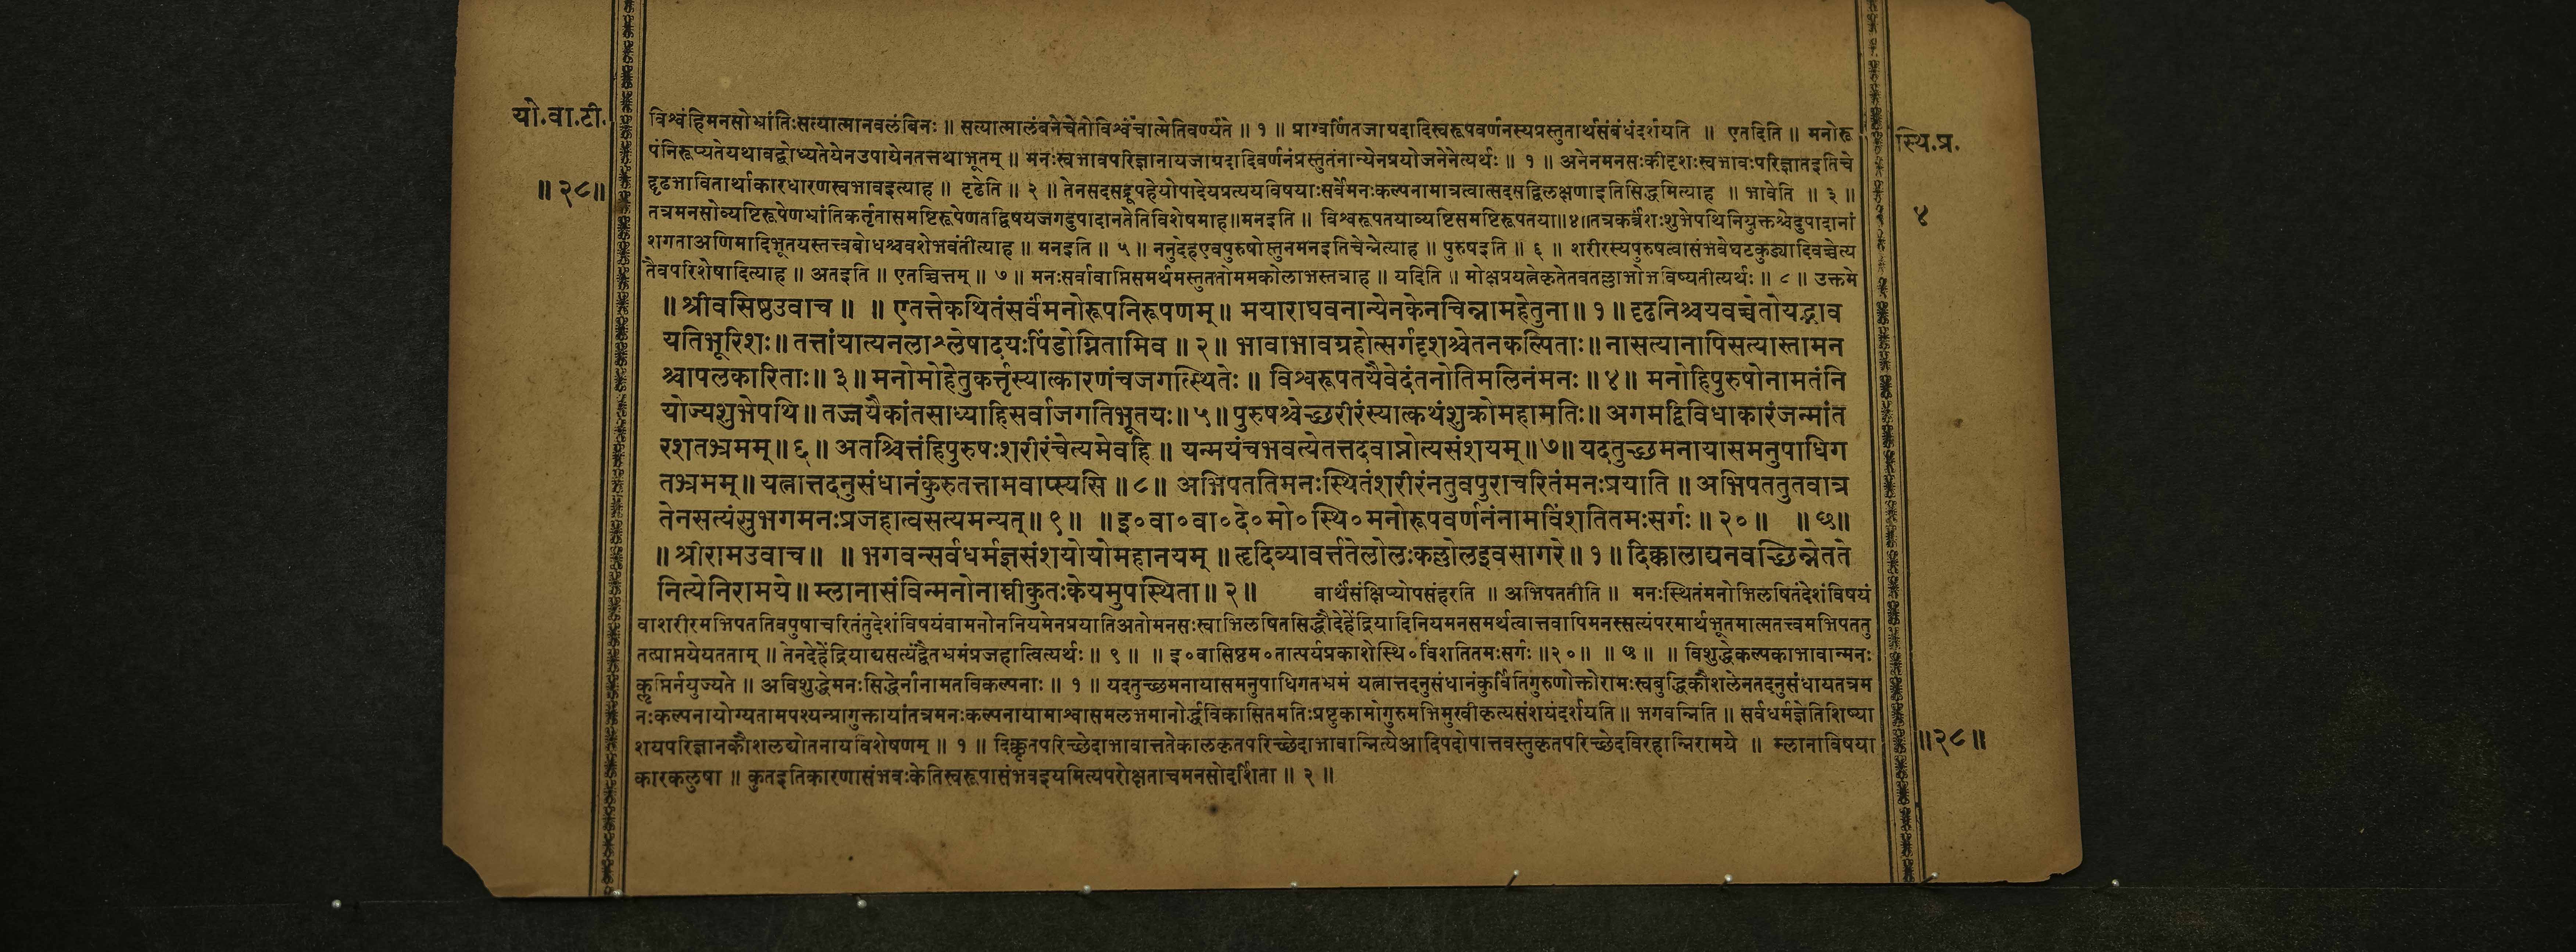 यो.वा.टी.
॥२८॥
विश्वंहिमनसोभ्रांतिःसत्यात्मानवलंबिनः ॥ सत्यात्मालंबनेचेतोविश्वंचात्मेतिवर्ण्यते ॥ १ ॥ प्राग्वर्णितजाग्रदादिस्वरूपवर्णनस्यप्रस्तुतार्थसंबंधंदर्शयति ॥ एतदिति ॥ मनोरू
पंनिरूप्यतेयथावद्बोध्यतेयेनउपायेनतत्तथाभूतम् ॥ मनःस्वभावपरिज्ञानायजाग्रदादिवर्णनंप्रस्तुतंनान्येनप्रयोजनेनेत्यर्थः ॥ १ ॥ अनेनमनसःकीदृशःस्वभावःपरिज्ञातइतिचे
द्दृढभावितार्थाकारधारणस्वभावइत्याह ॥ दृढेति ॥ २ ॥ तेनसदसद्रूपहेयोपादेयप्रत्ययविषयाःसर्वेमनःकल्पनामात्रत्वात्सदसद्विलक्षणाइतिसिद्धमित्याह ॥ भावेति ॥ ३ ॥
तत्रमनसोव्यष्टिरूपेणभ्रांतिकर्तृतासमष्टिरूपेणतद्विषयजगदुपादानतेतिविशेषमाह॥मनइति ॥ विश्वरूपतयाव्यष्टिसमष्टिरूपतया॥४॥तत्रकर्त्रंशःशुभेपथिनियुक्तश्चेदुपादानां
शगताअणिमादिभूतयस्तत्त्वबोधश्चवशेभवंतीत्याह ॥ मनइति ॥ ५ ॥ ननुदेहएवपुरुषोस्तुनमनइतिचेन्नेत्याह ॥ पुरुषइति ॥ ६ ॥ शरीरस्यपुरुषत्वासंभवेघटकुड्यादिवच्चेत्य
तैवपरिशेषादित्याह ॥ अतइति ॥ एतच्चित्तम् ॥ ७ ॥ मनःसर्वावाप्तिसमर्थमस्तुततोममकोलाभस्तत्राह ॥ यदिति ॥ मोक्षप्रयत्नेकृतेतवतल्लाभोभविष्यतीत्यर्थः ॥ ८ ॥ उक्तमे
॥ श्रीवसिष्ठउवाच ॥ ॥ एतत्तेकथितंसर्वंमनोरूपनिरूपणम् ॥ मयाराघवनान्येनकेनचिन्नामहेतुना ॥ १ ॥ दृढनिश्चयवच्चेतोयद्भाव
यतिभूरिशः ॥ तत्तांयात्यनलाश्लेषादयःपिंडोग्नितामिव ॥ २ ॥ भावाभावग्रहोत्सर्गदृशश्चेतनकल्पिताः ॥ नासत्यानापिसत्यास्तामन
श्चापलकारिताः ॥ ३ ॥ मनोमोहेतुकर्त्तृस्यात्कारणंचजगत्स्थितेः ॥ विश्वरूपतयैवेदंतनोतिमलिनंमनः ॥ ४ ॥ मनोहिपुरुषोनामतंनि
योज्यशुभेपथि ॥ तज्जयैकांतसाध्याहिसर्वाजगतिभूतयः ॥ ५ ॥ पुरुषश्चेच्छरीरंस्यात्कथंशुक्रोमहामतिः ॥ अगमद्विविधाकारंजन्मांत
रशतभ्रमम् ॥ ६ ॥ अतश्चित्तंहिपुरुषःशरीरंचेत्यमेवहि ॥ यन्मयंचभवत्येतत्तदवाप्नोत्यसंशयम् ॥ ७ ॥ यदतुच्छमनायासमनुपाधिग
तभ्रमम् ॥ यत्नात्तदनुसंधानंकुरुतत्तामवाप्स्यसि ॥ ८ ॥ अभिपततिमनःस्थितंशरीरंनतुवपुराचरितंमनःप्रयाति ॥ अभिपततुतवात्र
तेनसत्यंसुभगमनःप्रजहात्वसत्यमन्यत् ॥ ९ ॥ ॥ इ॰वा॰वा॰दे॰मो॰स्थि॰मनोरूपवर्णनंनामविंशतितमःसर्गः ॥ २० ॥ ॥ छ ॥
॥ श्रीरामउवाच ॥ ॥ भगवन्सर्वधर्मज्ञसंशयोयोमहानयम् ॥ हृदिव्यावर्त्ततेलोलःकल्लोलइवसागरे ॥ १ ॥ दिक्कालाद्यनवच्छिन्नेतते
नित्येनिरामये ॥ म्लानासंविन्मनोनाम्नीकुतःकेयमुपस्थिता ॥ २ ॥
वार्थंसंक्षिप्योपसंहरति ॥ अभिपततीति ॥ मनःस्थितंमनोभिलषितंदेशंविषयं
वाशरीरमभिपततिवपुषाचरितंतुदेशंविषयंवामनोननियमेनप्रयातिअतोमनसःस्वाभिलषितसिद्धौदेहेंद्रियादिनियमनसमर्थत्वात्तवापिमनस्सत्यंपरमार्थभूतमात्मतत्त्वमभिपततु
तत्प्राप्तयेयतताम् ॥ तेनदेहेंद्रियाद्यसत्यंद्वैतभ्रमंप्रजहात्वित्यर्थः ॥ ९ ॥ ॥ इ॰वासिष्ठम॰तात्पर्यप्रकाशेस्थि॰विंशतितमःसर्गः ॥२०॥ ॥ छ ॥ ॥ विशुद्धेकल्पकाभावान्मनः
कॢप्तिर्नयुज्यते ॥ अविशुद्धेमनःसिद्धेर्नानामतविकल्पनाः ॥ १ ॥ यदतुच्छमनायासमनुपाधिगतभ्रमं यत्नात्तदनुसंधानंकुर्वितिगुरुणोक्तोरामःस्वबुद्धिकौशलेनतदनुसंधायतत्रम
नःकल्पनायोग्यतामपश्यन्प्रागुक्तायांतत्रमनःकल्पनायामाश्वासमलभमानोर्द्धविकासितमतिःप्रष्टुकामोगुरुमभिमुखीकृत्यसंशयंदर्शयति ॥ भगवन्निति ॥ सर्वधर्मज्ञेतिशिष्या
शयपरिज्ञानकौशलद्योतनायविशेषणम् ॥ १ ॥ दिक्कृतपरिच्छेदाभावात्ततेकालकृतपरिच्छेदाभावान्नित्येआदिपदोपात्तवस्तुकृतपरिच्छेदविरहान्निरामये ॥ म्लानाविषया
कारकलुषा ॥ कुतइतिकारणासंभवःकेतिस्वरूपासंभवइयमित्यपरोक्षताचमनसोदर्शिता ॥ २ ॥
स्थि.प्र.
४
॥२८॥